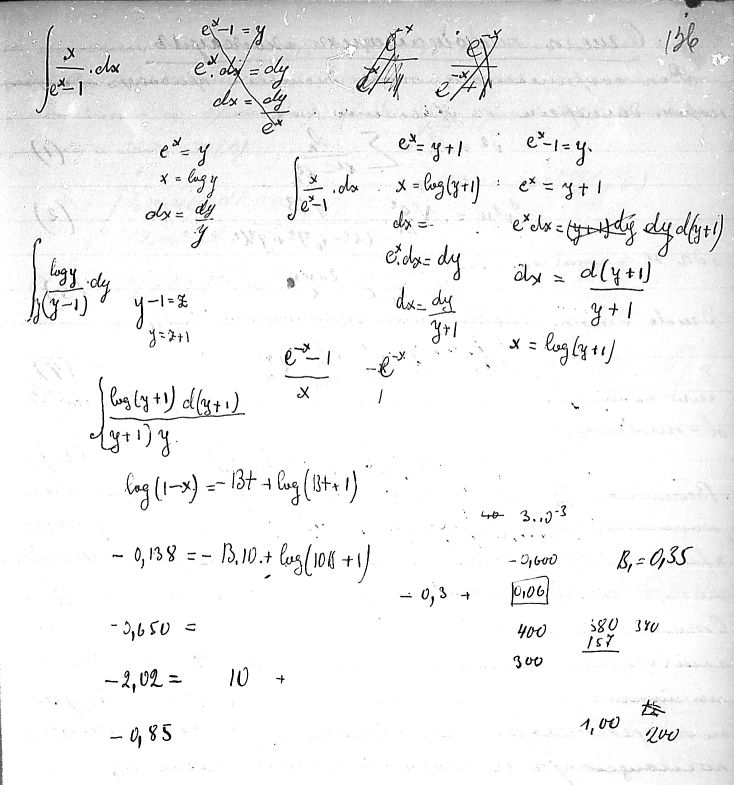 136
∫ x/(eˣ-1) · dx
eˣ-1 = y
eˣ · dx = dy
dx = dy/eˣ
e⁻ˣ
e⁻ˣ
eˣ = y
x = log y
dx = dy/y
∫ x/(eˣ-1) · dx
eˣ = y+1
x = log(y+1)
dx =
eˣ·dx = dy
dx = dy/(y+1)
eˣ-1 = y.
eˣ = y+1
eˣdx = (y+1)dy dy d(y+1)
dx = d(y+1)/(y+1)
x = log(y+1)
∫ log y/(y(y-1)) · dy
y-1 = z
y = z+1
(e⁻ˣ-1)/x
-e⁻ˣ
1
∫ log(y+1) d(y+1)/((y+1) y)
log(1-x) = -Bt + log(Bt+1)
3..10⁻³
- 0,138 = - B.10. + log(10B+1)
-0,600
B₁ = 0,35
- 0,3 + 0,06
-0,650 =
400
380 340
157
300
-2,02 = 10 +
- 0,85
1,00
200